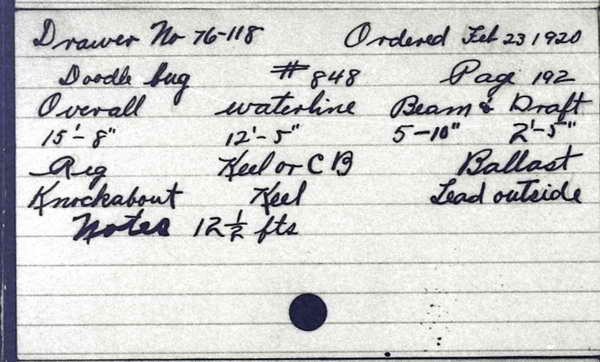 Drawer No 76-118 Ordered Feb 23 1920
Doodle bug #848 Page 192
Overall waterline Beam & Draft
15'-8" 12'-5" 5-10" 2'-5"
Rig Keel or C B Ballast
Knockabout Keel Lead outside
Notes 12½ fts